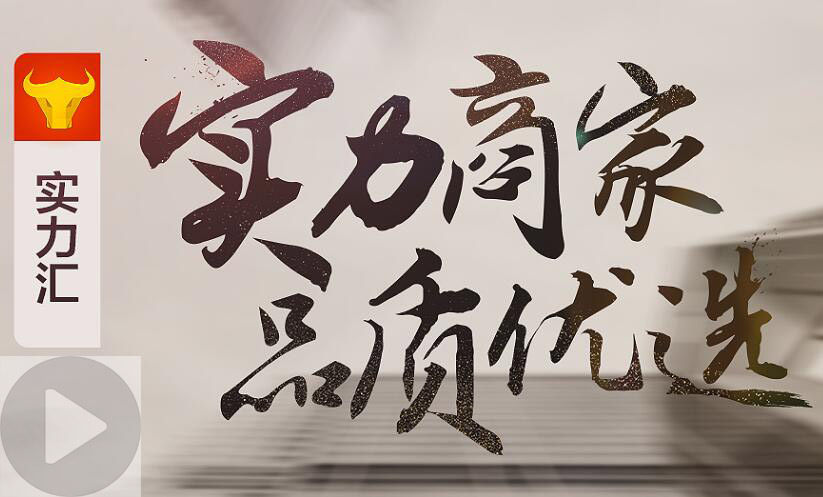 实力汇
实力商家
品质优选